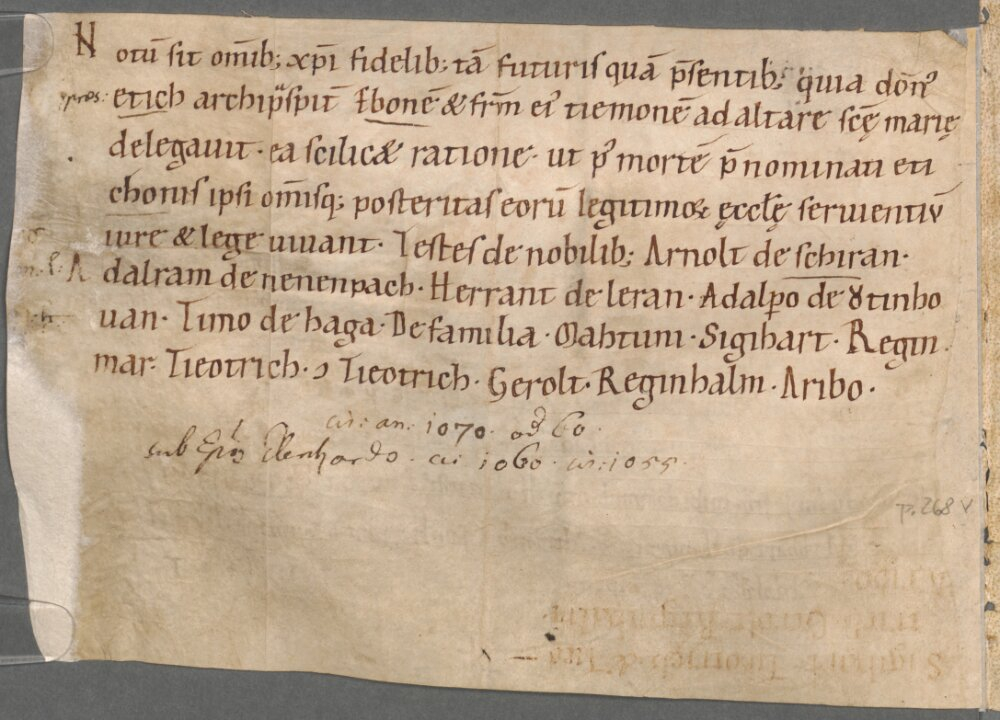 Notū sit om̄ib; xp̄i fidelib; tā futuris quā p̄sentib; quia dōn᷒
etich archip̄sp̄it Ebonē & fr̄m ei᷒ tiemonē ad altare scę̄ marię
delegauit · ea scilicæ ratione · ut p᷒ mortē p̄nominati eti
chonis ipsi om̄isq; posteritas eorū legitimoꝝ ęccłę seruientiū
iure & lege uiuant · Testes de nobilib; Arnolt de schiran ·
Adalram de nenenpach · Herrant de leran · Adalpo de
uan · Timo de haga · De familia · Mahtuni · Sigihart · Regin
mar · Tieotrich · ɔ Tieotrich · Gerolt · Reginhalm · Aribo ·
cir: an: 1070. od 60.
sub Ep̄o Ellenhardo. 1060. cir: 1055.
p. 268 v